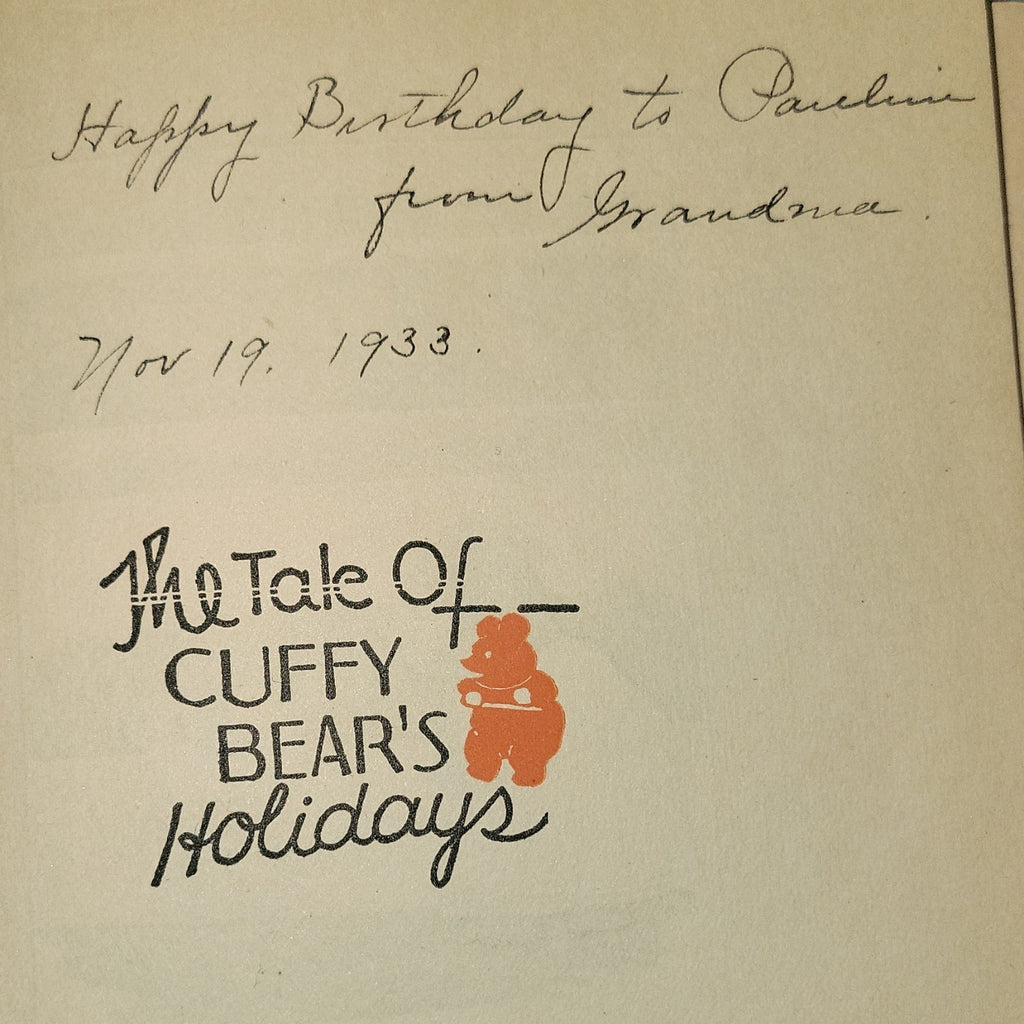 Happy Birthday to Pauline
from Grandma.
Nov 19. 1933.
The Tale Of
CUFFY
BEAR'S
Holidays